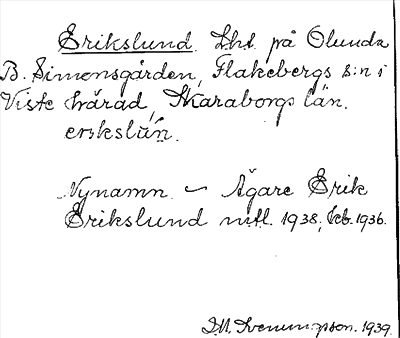 Erikslund. Lht på Olunda
B. Simonsgården, Flakebergs s:n i
Viste härad, Skaraborgs län.
erskslun.
Nynamn. — Ägare Erik
Erikslund mtl. 1938, keb. 1936.
1939.